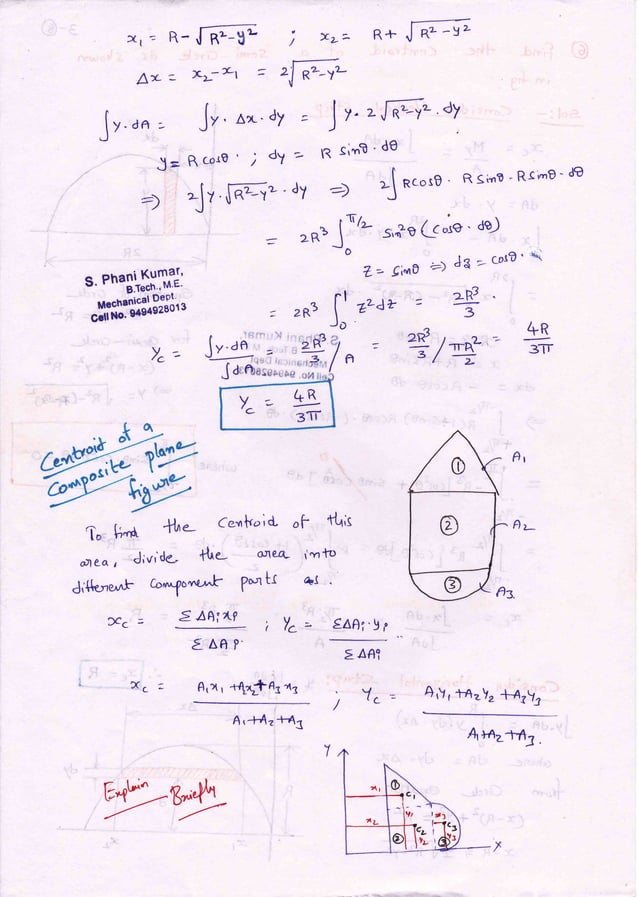 x₁ = R - √R²-y² ; x₂ = R + √R²-y²
Δx = x₂-x₁ = 2√R²-y²
∫y.dA = ∫y. Δx. dy = ∫y. 2√R²-y² .dy
y = R cosθ . ; dy = R sinθ. dθ
⇒ 2∫y.√R²-y² . dy ⇒ 2∫Rcosθ. R sinθ. Rsinθ. dθ
= 2R³ ∫₀^π/2 sin²θ (cosθ. dθ)
z = sinθ ⇒ dz = cosθ.
S. Phani Kumar,
B.Tech., M.E.
Mechanical Dept.
Cell No. 9494928013
= 2R³ ∫₀^1 z²dz = 2R³/3 .
Yc = ∫y.dA / ∫dA = 2R³/3 / A = 2R³/3 / πR²/2 = 4R/3π
Yc = 4R/3π
Centroid of a
Composite plane
figure
① A₁
② A₂
③ A₃
To find the Centroid of this
area, divide the area into
different Component parts as.
xc = ΣΔAi xi / ΣΔAi ; Yc = ΣΔAi.yi / ΣΔAi
xc = A₁x₁ + A₂x₂ + A₃x₃ / A₁+A₂+A₃ ; Yc = A₁y₁ + A₂y₂ + A₃y₃ / A₁+A₂+A₃.
Explain Briefly
Y
① x₁ C₁ y₁
x₂ C₂ y₂ ②
x₃ C₃ y₃ ③
X